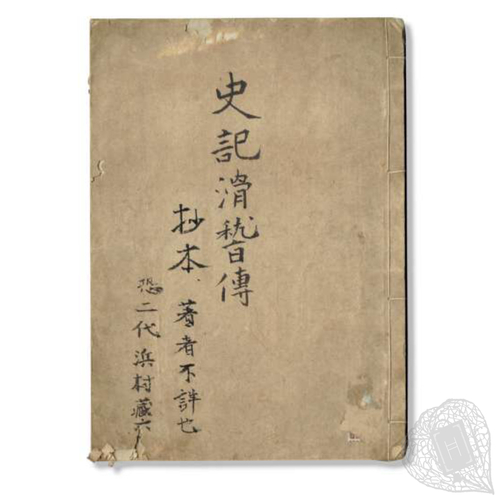 史記滑稽傳
抄本、著者不詳也
恐二代浜村蔵六